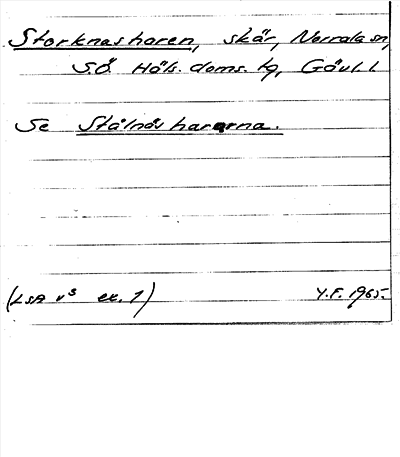 Storknasharen, skär, Norrala sn,
SÖ. Häls. doms. tg, Gävl. l.
Se Stålnäsharorna.
(LSA v³ ex. 1) Y.F. 1965.